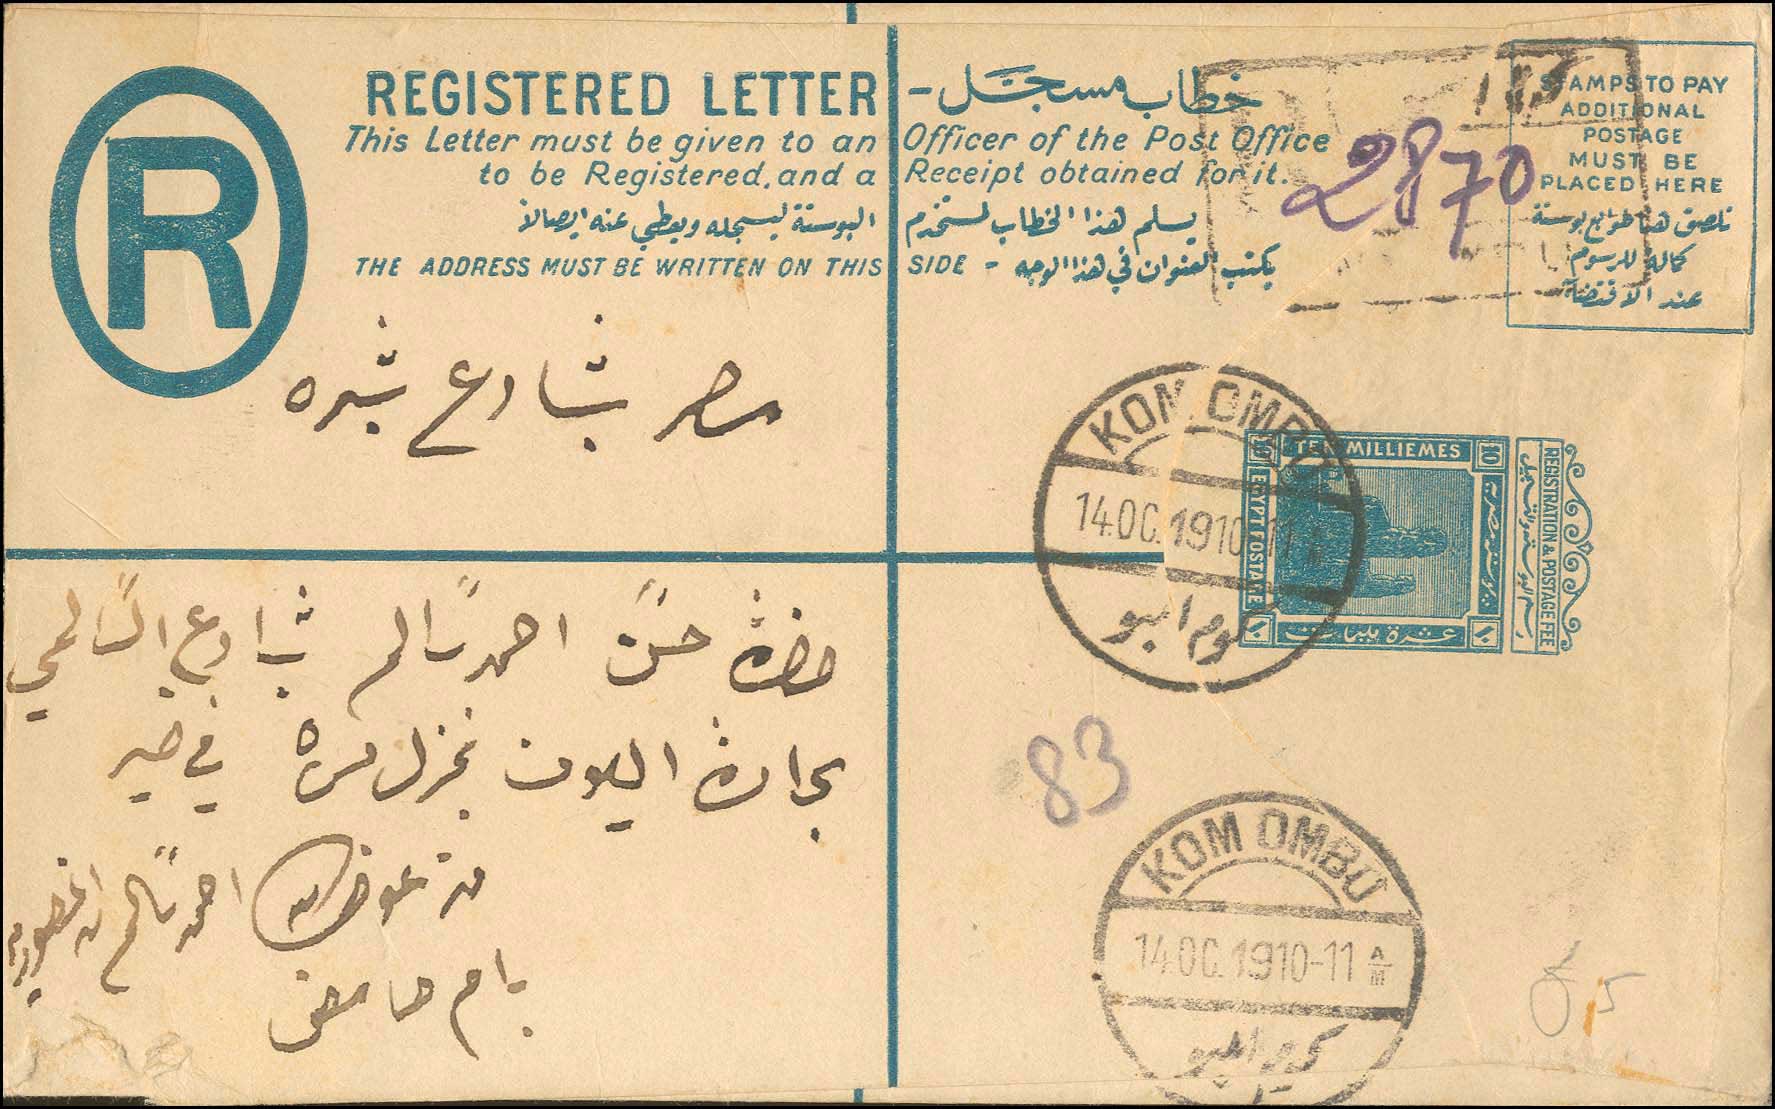 REGISTERED LETTER
خطاب مسجل -
This Letter must be given to an Officer of the Post Office
to be Registered, and a Receipt obtained for it.
يسلم هذا الخطاب لمستخدم البوستة ليسجله ويعطي عنه ايصالا
THE ADDRESS MUST BE WRITTEN ON THIS SIDE - يكتب العنوان في هذا الوجه
R
STAMPS TO PAY
ADDITIONAL
POSTAGE
MUST BE
PLACED HERE
تلصق هنا طوابع بوستة
تكملة للرسوم
عند الاقتضاء
2870
مصر شارع شبره
KOM OMBO
14.OC.1910-11
كوم امبو
TEN MILLIEMES
10
10
EGYPT POSTAGE
عشرة مليمات
١٠
١٠
REGISTRATION & POSTAGE FEE
حضرة حسن احمد سالم شارع
بحارة منزل
83
من عوض الله احمد سالم
KOM OMBO
14.OC.1910-11 A/M
كوم امبو
5